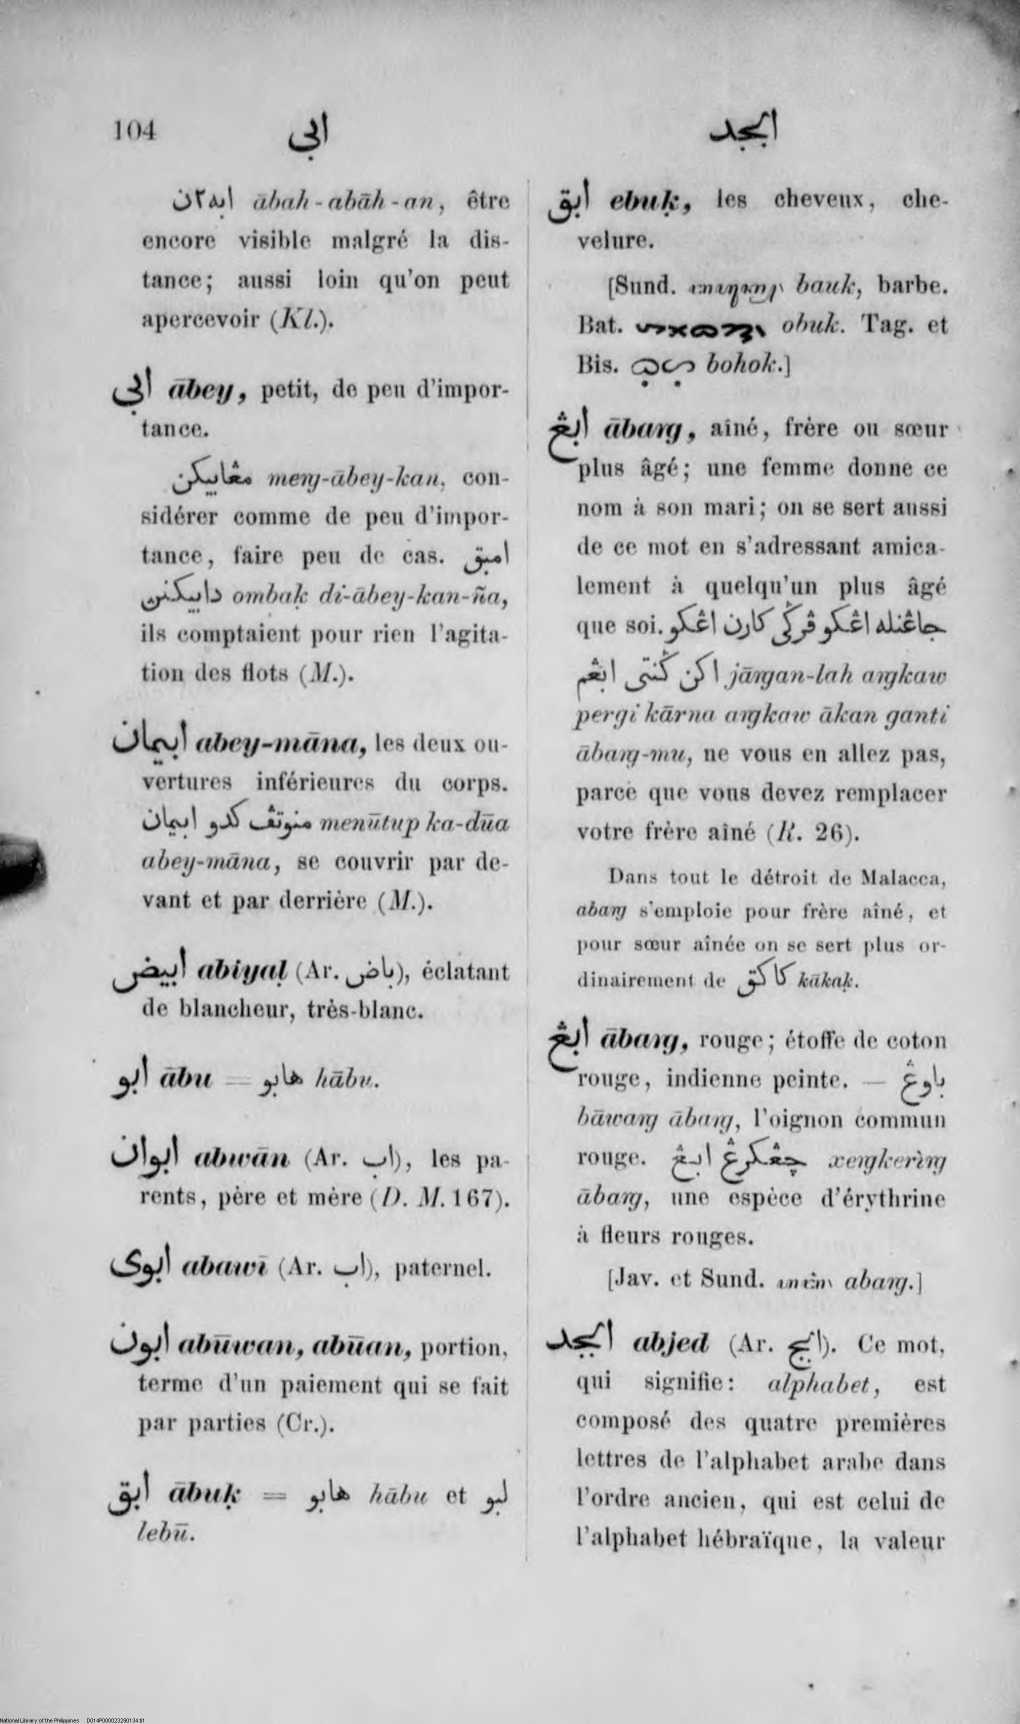 104 ابي ابجد
ابه٢ان ābah-abāh-an, être
encore visible malgré la dis-
tance; aussi loin qu'on peut
apercevoir (Kl.).
ابي ābey, petit, de peu d'impor-
tance.
مڠابيكن meŋ-ābey-kan, con-
sidérer comme de peu d'impor-
tance, faire peu de cas. امبق
دابيكنن ombaḳ di-ābey-kan-ña,
ils comptaient pour rien l'agita-
tion des flots (M.).
ابيمان abey-māna, les deux ou-
vertures inférieures du corps.
منوتڤ كدو ابيمان menūtup ka-dūa
abey-māna, se couvrir par de-
vant et par derrière (M.).
ابيض abiyaḷ (Ar. باض), éclatant
de blancheur, très-blanc.
ابو ābu = هابو hābu.
ابوان abwān (Ar. اب), les pa-
rents, père et mère (D. M. 167).
ابوى abawī (Ar. اب), paternel.
ابون abūwan, abūan, portion,
terme d'un paiement qui se fait
par parties (Cr.).
ابق ābuḳ = هابو hābu et لبو
lebū.
ابق ebuḳ, les cheveux, che-
velure.
[Sund. bauk, barbe.
Bat. obuk. Tag. et
Bis. bohok.]
ابڠ ābaŋ, aîné, frère ou sœur
plus âgé; une femme donne ce
nom à son mari; on se sert aussi
de ce mot en s'adressant amica-
lement à quelqu'un plus âgé
que soi. جاڠنله اڠكو ڤرݢي كارن اڠكو
اكن ݢنتي ابڠم jāŋgan-lah aŋkaw
pergi kārna aŋkaw ākan ganti
ābaŋ-mu, ne vous en allez pas,
parce que vous devez remplacer
votre frère aîné (R. 26).
Dans tout le détroit de Malacca,
abaŋ s'emploie pour frère aîné, et
pour sœur aînée on se sert plus or-
dinairement de كاكق kākaḳ.
ابڠ ābaŋ, rouge; étoffe de coton
rouge, indienne peinte. — باوڠ
bāwaŋ ābaŋ, l'oignon commun
rouge. چڠكرڠ ابڠ xeŋkerìŋ
ābaŋ, une espèce d'érythrine
à fleurs rouges.
[Jav. et Sund. abaŋ.]
ابجد abjed (Ar. ابج). Ce mot,
qui signifie: alphabet, est
composé des quatre premières
lettres de l'alphabet arabe dans
l'ordre ancien, qui est celui de
l'alphabet hébraïque, la valeur
National Library of the Philippines D014P000023280134.tif